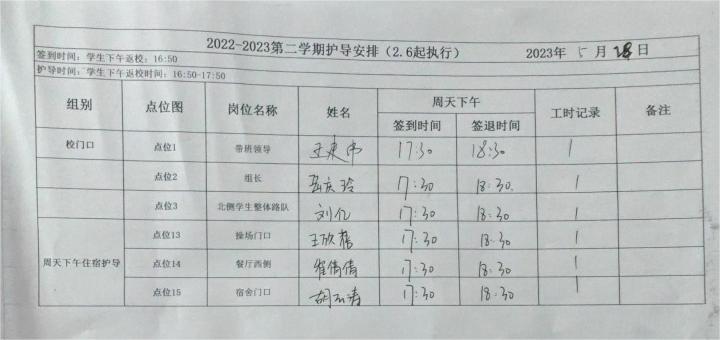 2022-2023第二学期护导安排（2.6起执行） 2023年 5 月 28 日
签到时间：学生下午返校：16:50
护导时间：学生下午返校时间：16:50-17:50
组别 点位图 岗位名称 姓名 周天下午 工时记录 备注
签到时间 签退时间
校门口 点位1 带班领导 17:30 18:30 1
点位2 组长 岳庆玲 17:30 18:30. 1
点位3 北侧学生整体路队 刘亿 17:30 18:30 1
周天下午住宿护导 点位13 操场门口 王欣 17:30 18:30 1
点位14 餐厅西侧 崔倩倩 17:30 18:30 1
点位15 宿舍门口 胡 涛 17:30 18:30 1